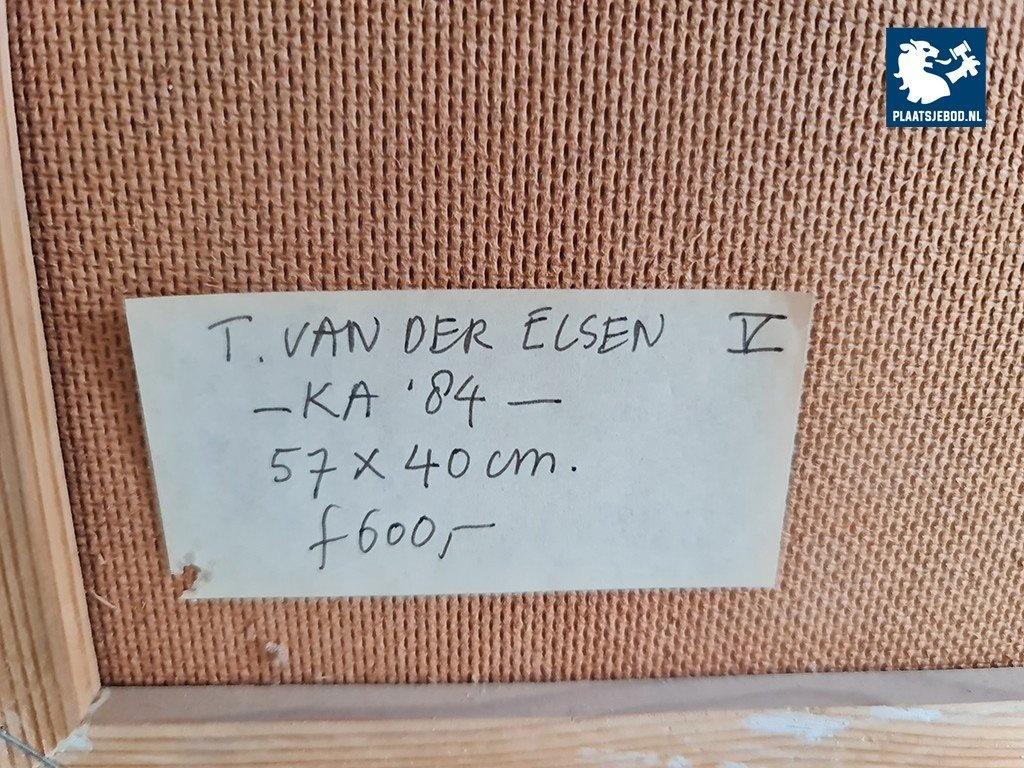 PLAATSJEBOD.NL
T. VAN DER ELSEN V
- KA '84 -
57 x 40 cm.
f 600,-